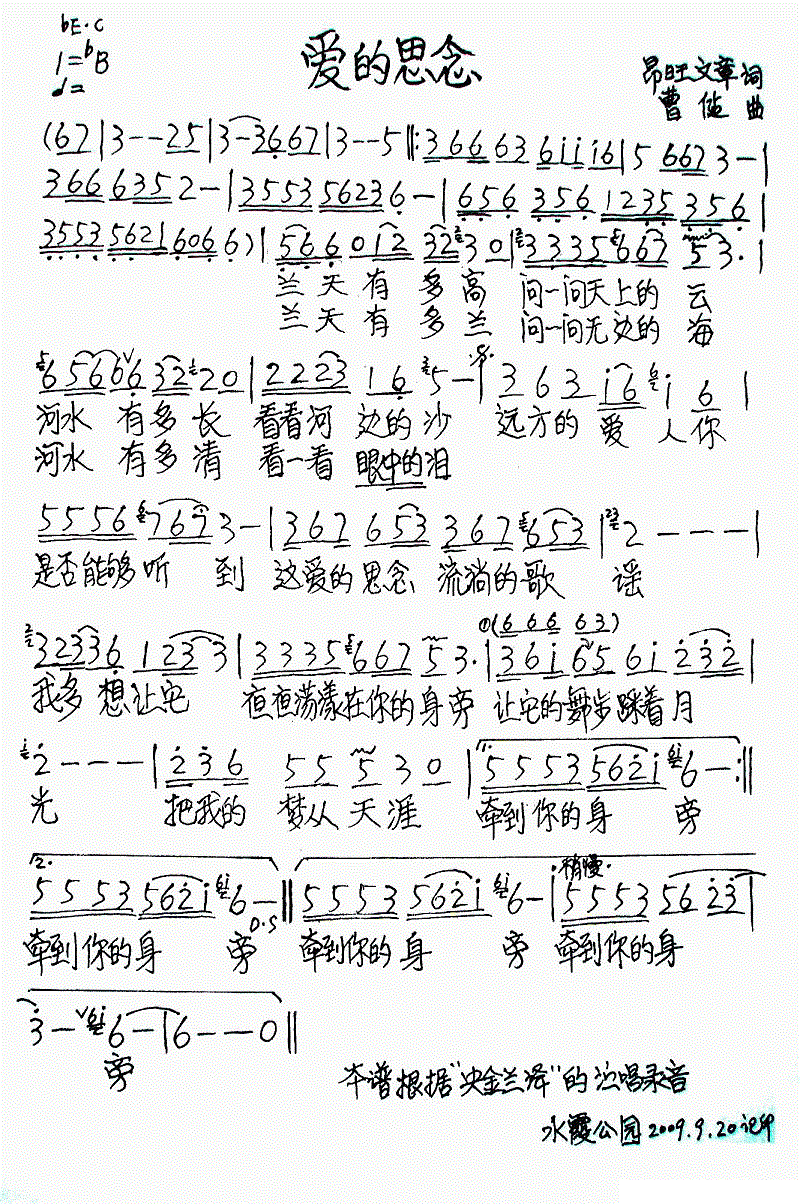 bE·C
1=bB
♩=
爱的思念
昂旺文章 词
曹 曲
(67|3--25|3-3667|3--5‖:366 63 6iii6|5 6673-|
366 6352-|3553 56236-|656 356 1235 356|
3553 5621 6066)|566012 3230|3335 663 53·|
兰天有 多高 问一问天上的 云
兰天有 多兰 问一问无边的 海
656663220|22231 65-|363 i6 i 6|
河水 有多长 看看河 边的沙 远方的 爱 人你
河水 有多清 看一看 眼中的泪
5556 7673-|367 653 367 653|2---|
是否能够听 到 这爱的思念 流淌的歌 谣
①(666 63)
322336 1233|3335 667 53·|36i 65 6i 232|
我多想让它 夜夜荡漾在你的身旁 让它的舞步踩着月
2---|236 55 530|1. 5553562i6-:‖
光 把我的 梦从天涯 牵到你的身 旁
稍慢
2. 5553562i6-‖5553 562i6-|5553 5623|
D.S
牵到你的身 旁 牵到你的身 旁 牵到你的身
3-6-|6--0‖
旁
本谱根据“央金兰泽”的演唱录音
水霞公园2009.9.20记印